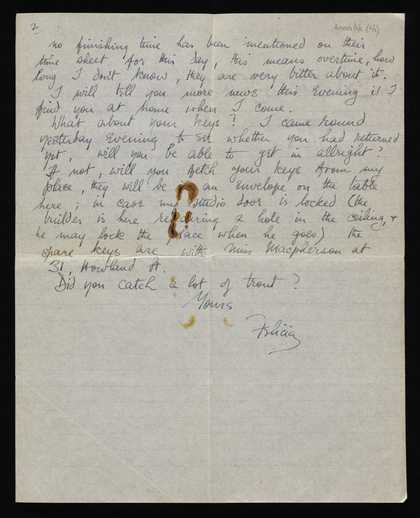 2
no finishing time has been mentioned on their
time sheet for this day, this means overtime, how
long I don't know, they are very bitter about it.
I will tell you more news this evening if I
find you at home when I come.
What about your keys? I came round
yesterday evening to see whether you had returned
yet, will you be able to get in allright?
If not, will you fetch your keys from my
place, they will be in an envelope on the table
here; in case my studio door is locked (the
builder is here repairing a hole in the ceiling, &
he may lock the place when he goes) the
spare keys are with Miss Macpherson at
31, Howland St.
Did you catch a lot of trout?
Yours
Felicia